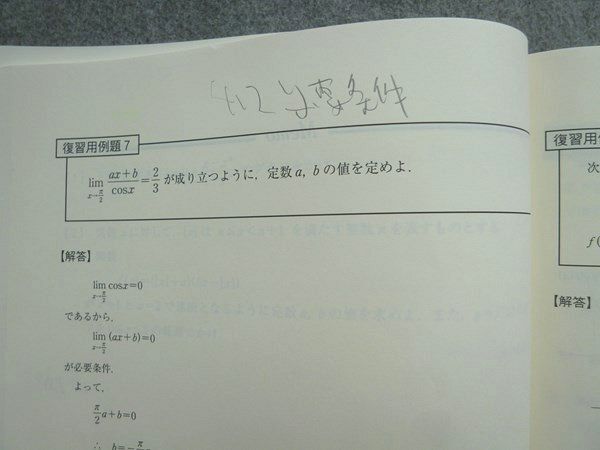 4.12 必要条件
復習用例題7
lim x→π/2 (ax+b)/cosx = 2/3 が成り立つように，定数a, bの値を定めよ．
【解答】
lim x→π/2 cosx=0
であるから，
lim x→π/2 (ax+b)=0
が必要条件．
よって，
π/2 a+b=0
∴ b=-π
復習用
次
f(
【解答】